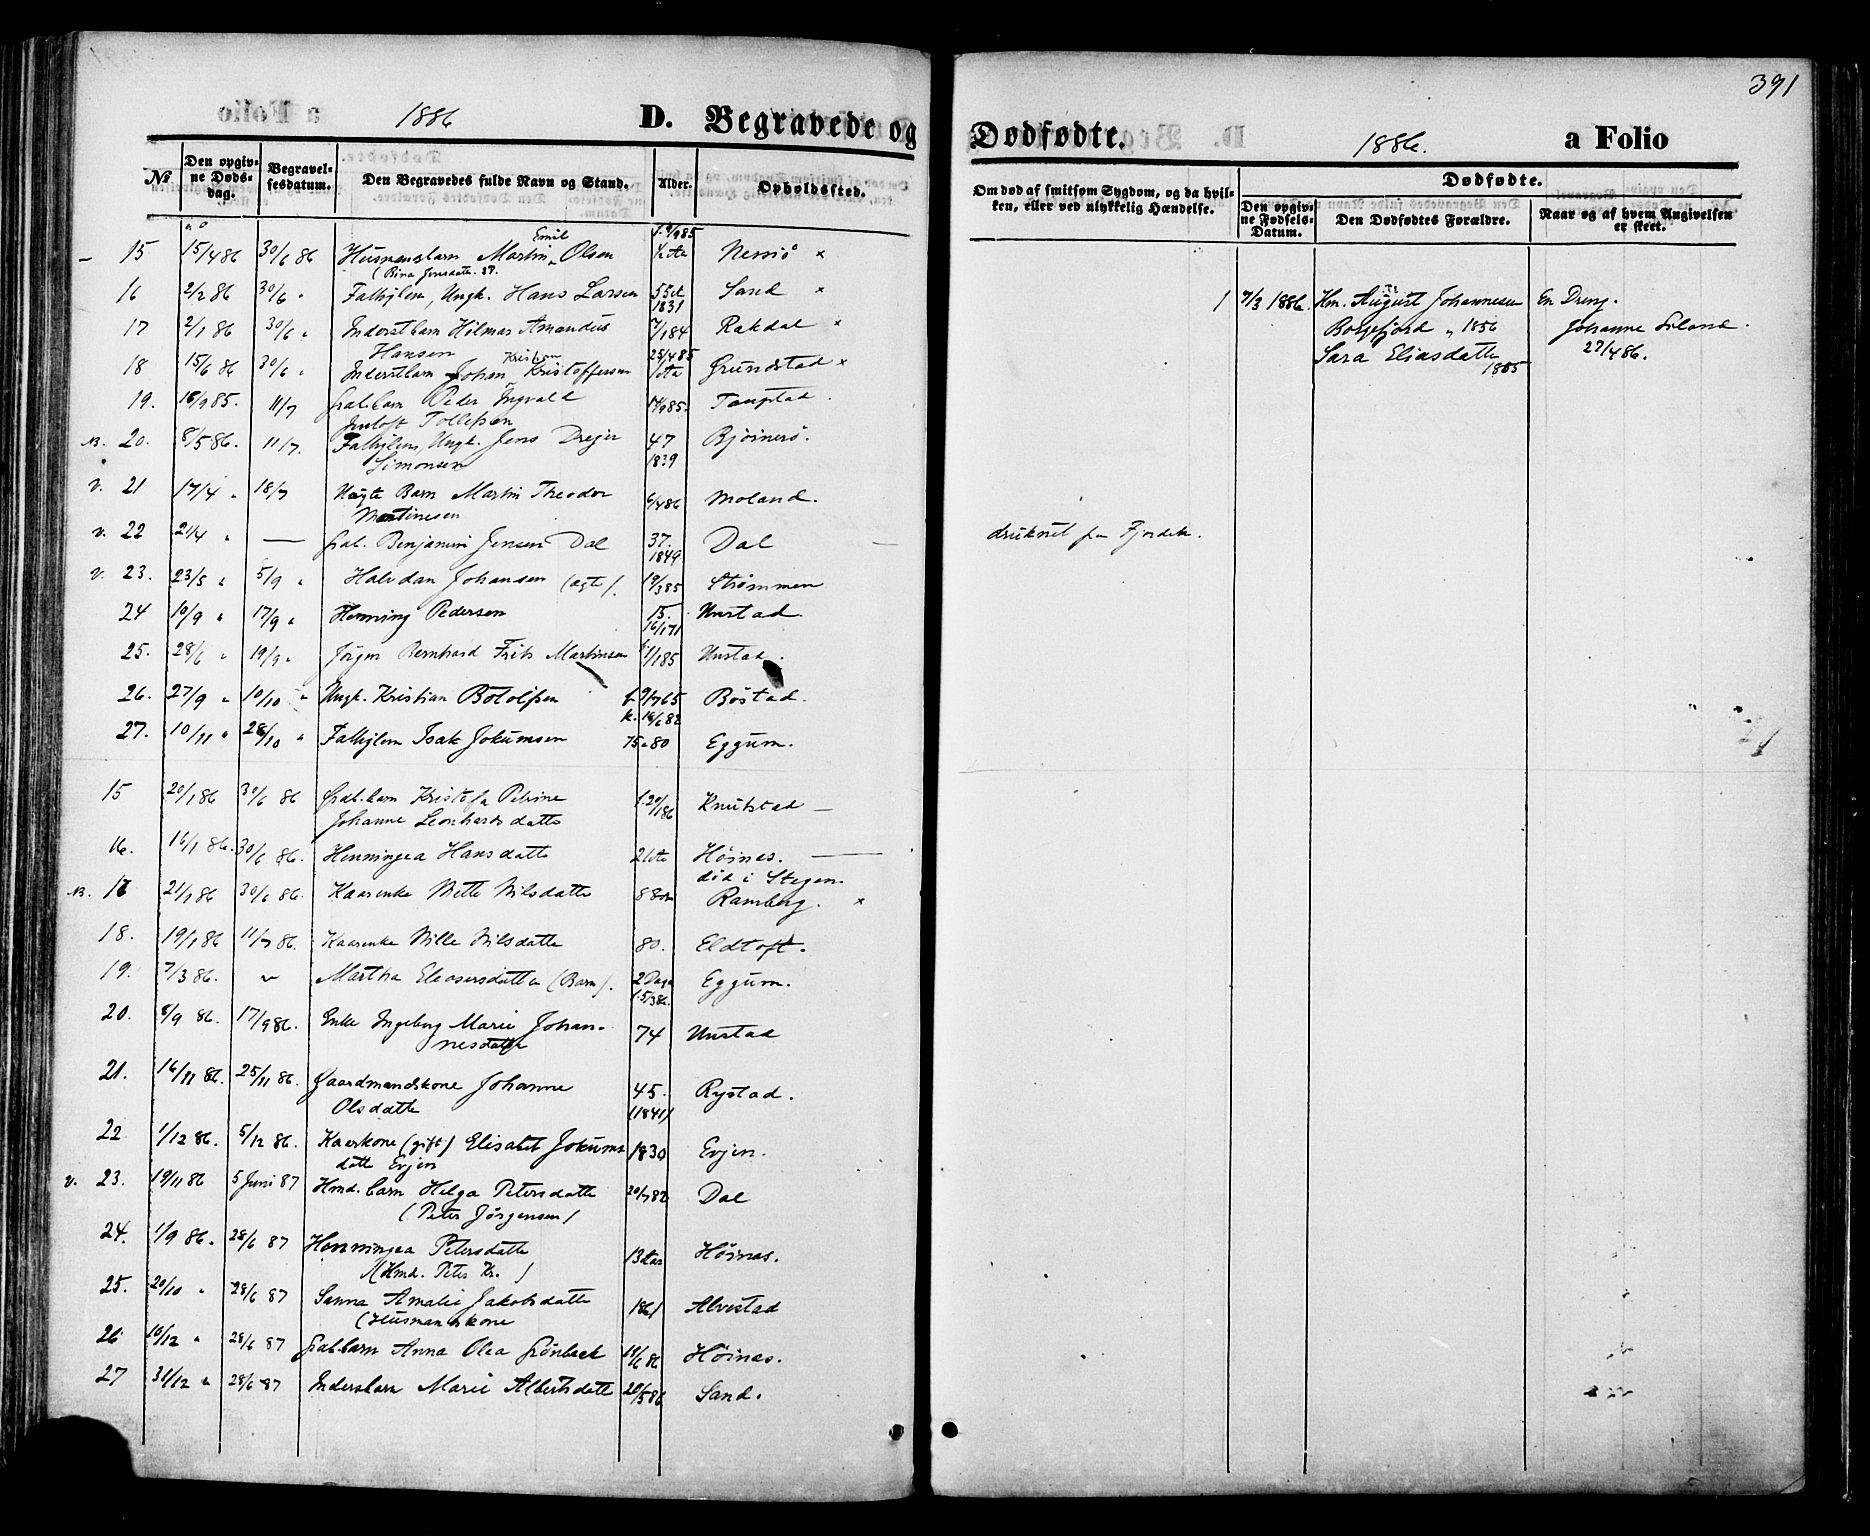 391
1886 D. Begravede og Dødfødte. 1886. a Folio
No
Den opgivne Dødsdag.
Begravelsesdatum.
Den Begravedes fulde Navn og Stand.
Alder.
Opholdssted.
Om død af smitsom Sygdom, og da hvilken, eller ved ulykkelig Hændelse.
Dødfødte.
Den opgivne Fødsels-Datum.
Den Dødfødtes Forældre.
Naar og af hvem Angivelsen er skeet.
15 15/4 86 30/6 86 Husmansbarn Martin Emil Olsen
16 2/2 86 30/6 " Fattiglem, Ungk. Hans Larsen 55 1831 Sand x
17 2/1 86 30/6 " Inderstbarn Hilmar Amandus 7/1 84 Rakdal x
Hansen
18 15/6 86 30/6 " Inderstbarn Johan Kristian Kristoffersen 25/4 85 Grundstad x
19. 16/9 85. 11/7 Peder Ingvald 85. Tangstad.
Tollefsen
20. 8/5 86. 11/7. Fattiglem, Ungk. Jens Drejer 47 1839
Simonsen
V. 21 17/4 " 18/7 Uægte Barn Martin Theodor 6/4 86 Moland.
Martinesen
V. 22 21/4 " — Benjamin Jensen Dal 37. 1849 Dal druknet paa Fjorden.
V. 23. 23/5 " 5/9 " Halvdan Johansen (ægte). 19/3 85 Strømmen
24 10/9 " 17/9 " Henning Pedersen 15. 16/1 71 Unstad
25. 28/6 " 19/9 " Jörgen Bernhard Frits Martinsen 1/1 85 Unstad.
26. 27/9 " 10/10 " Ungk. Kristian Botolfsen f. 9/7 65 Böstad.
k. 18/6 82
27. 10/11 " 28/10 " Fattiglem Isak Jokumsen 75-80 Eggum.
15 20/1 86 30/6 86 Kristofa Petrine f. 20/1 86 Knutstad —
Johanne Leonhardsdatter
16. 16/1 86. 30/6 86. Henningea Hansdatter Höinas.
død i Stegen
17 21/1 86 30/6 86. Kaarenke Mette Nilsdatte Ramberg. x
18. 19/1 86 11/7 86. Kaarenke Nille Nilsdatte 80. Eldtoft.
19. 7/3 86. Martha Eleasersdatter (Barn). 2 Dage f. 5/3 86. Eggum.
20. 8/9 86. 17/9 86. Enke Ingeborg Marie Johan- 74 Unstad
nesdatter
21. 16/11 86. 25/11 86. Gaardmandskone Johanne 45. (1841) Rystad.
Olsdatte
22 1/12 86. 5/12 86. Kaarkone (gift) Elisabet Jokums 1830 Evjen.
datte Evjen
V. 23. 19/11 86 5 Juni 87 Hmd. barn Helga Petersdatte 20/7 82 Dal
(Peter Jörgensen)
24. 1/9 86. 28/6 87 Henningea Petersdatte Höinas.
(Hmd. Peter Kr.)
25. 20/10 " 28/6 87 Sanna Amalie Jakobsdatte 1861 Alvestad
(Husmandskone
26 10/12 " 28/6 87 Anna Olea Grönbæk 86 Höinas.
27 31/12 " 28/6 87 Inderstbarn Marie Albertsdatte 20/5 86 Sand.
1 7/3 1886. Hm. August Johannesen En Dreng.
Borgefjord " 1856 Johanne
Sara Eliasdatte 1855 27/4 86.